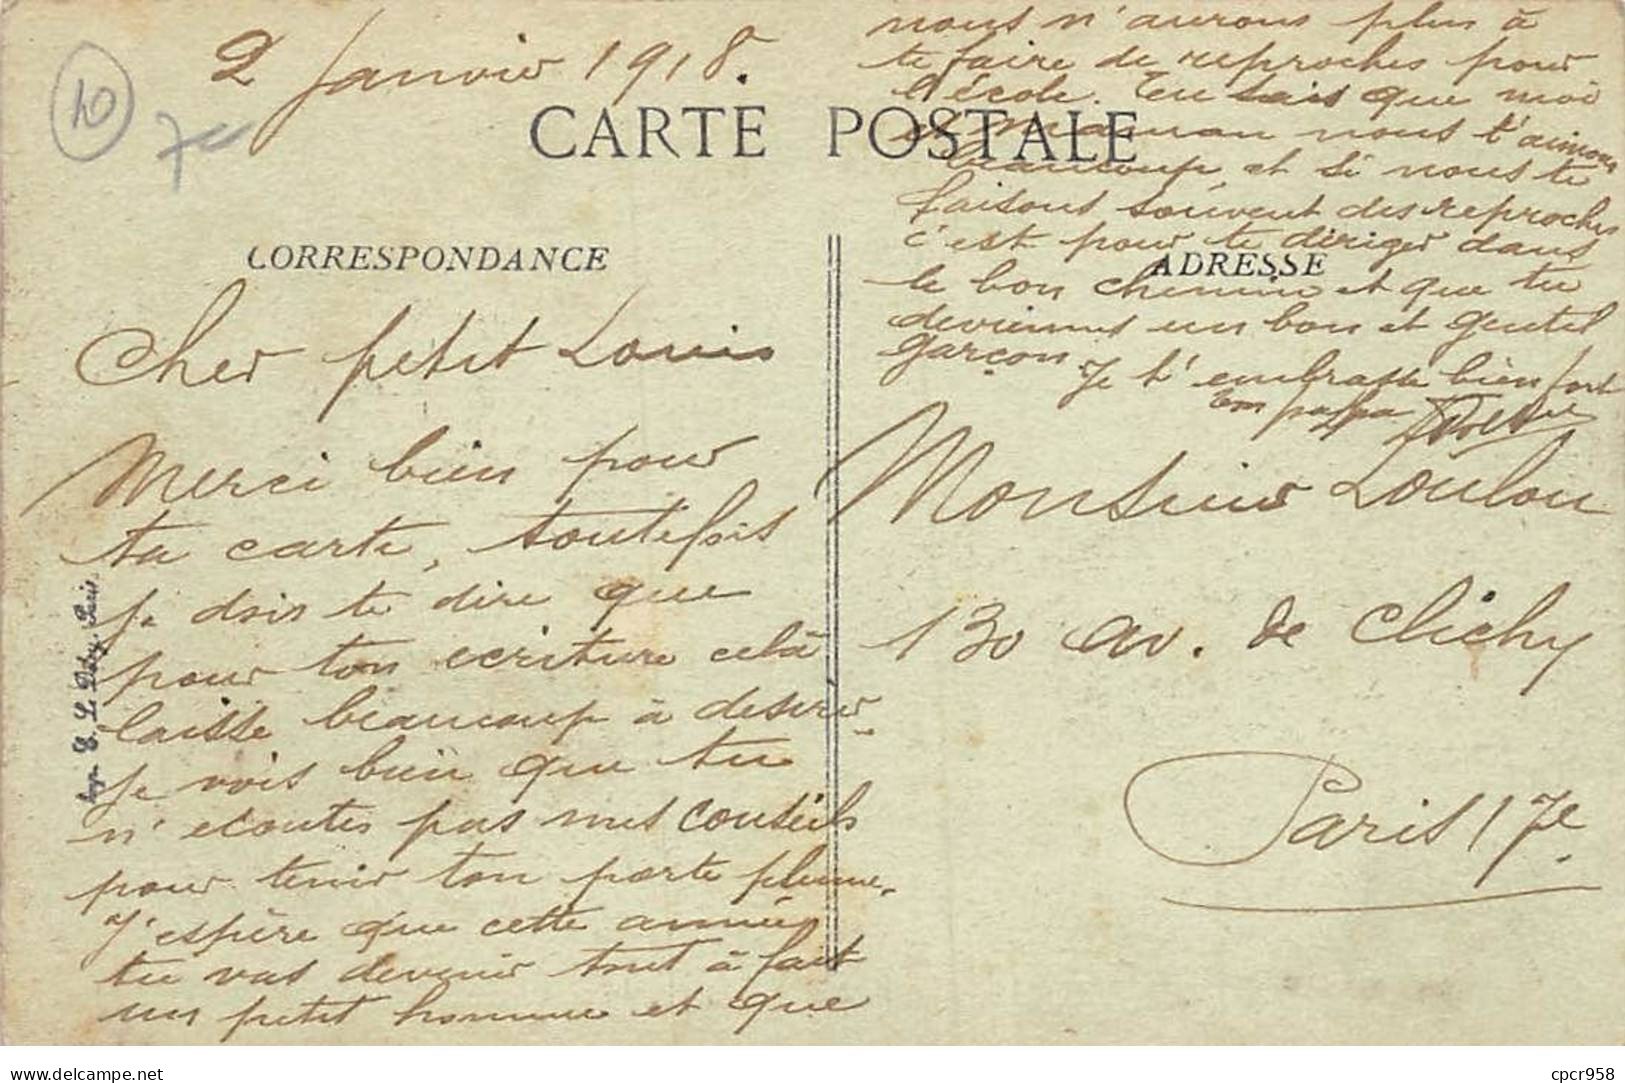 2 Janvier 1918.
CARTE POSTALE
CORRESPONDANCE
Cher petit Louis
Merci bien pour
ta carte, toutefois
je dois te dire que
pour ton ecriture celà
laisse beaucoup à desirer.
je vois bien que tu
n'ecoutes pas mes conseils
pour tenir ton porte plume.
J'espère que cette année
tu vas devenir tout à fait
un petit homme et que
nous n'aurons plus à
te faire de reproches pour
l'école. Tu sais que moi
et maman nous t'aimons
beaucoup et si nous te
faisons souvent des reproches
c'est pour te diriger dans
le bon chemin et que tu
deviennes un bon et gentil
garçon. Je t'embrasse bien fort
ton papa
ADRESSE
Monsieur Loulou
130 av. de Clichy
Paris 17e
Imp. E. Le Deley, Paris
10
7
delcampe.net
cpcr958